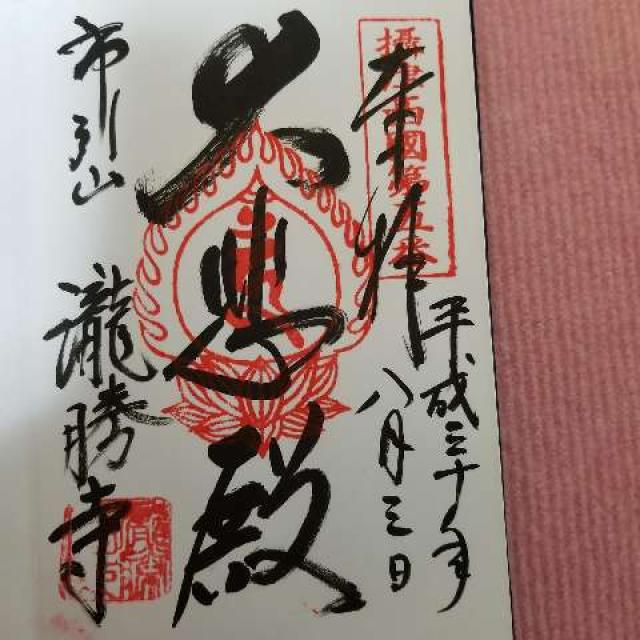 攝津西國第五番
奉拝
平成三十年
八月三日
大悲殿
布引山
瀧勝寺